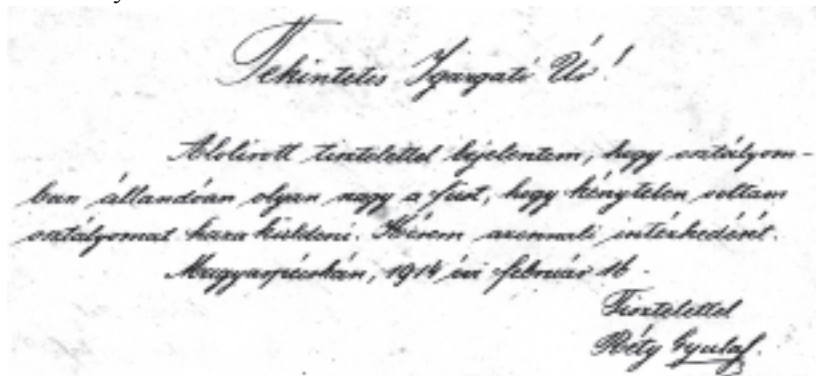 Tekintetes Igazgató Úr!
Alolirott tisztelettel bejelentem, hogy osztályom-
ban állandóan olyan nagy a füst, hogy kénytelen voltam
osztályomat haza küldeni. Kérem azonnali intézkedését.
Magyarpécskán, 1914 évi február 16.
Tisztelettel
Réty Gyula